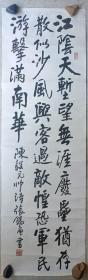 江陰天塹望無涯廢壘猶存
散似沙風興客過敵惶恐軍民
游擊滿南華 陳毅元帥詩張書